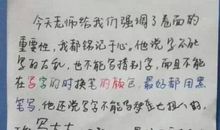 今天老师给我们强调了卷面的
重要性，我都铭记于心。他说写不能
写的太乱，也不能写错别字，而且不能
在写字的时候换笔的颜色，最好都用黑
笔写，他还说写字不能写